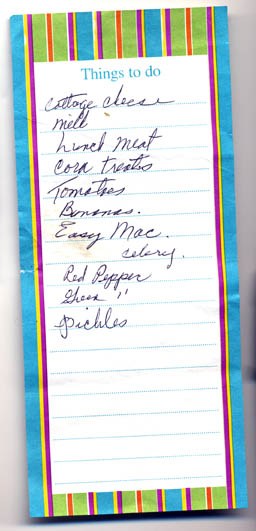 Things to do
Cottage cheese
milk
Lunch meat
Corn treats
Tomatoes
Bananas.
Easy Mac.
celery.
Red Pepper
Green "
Pickles